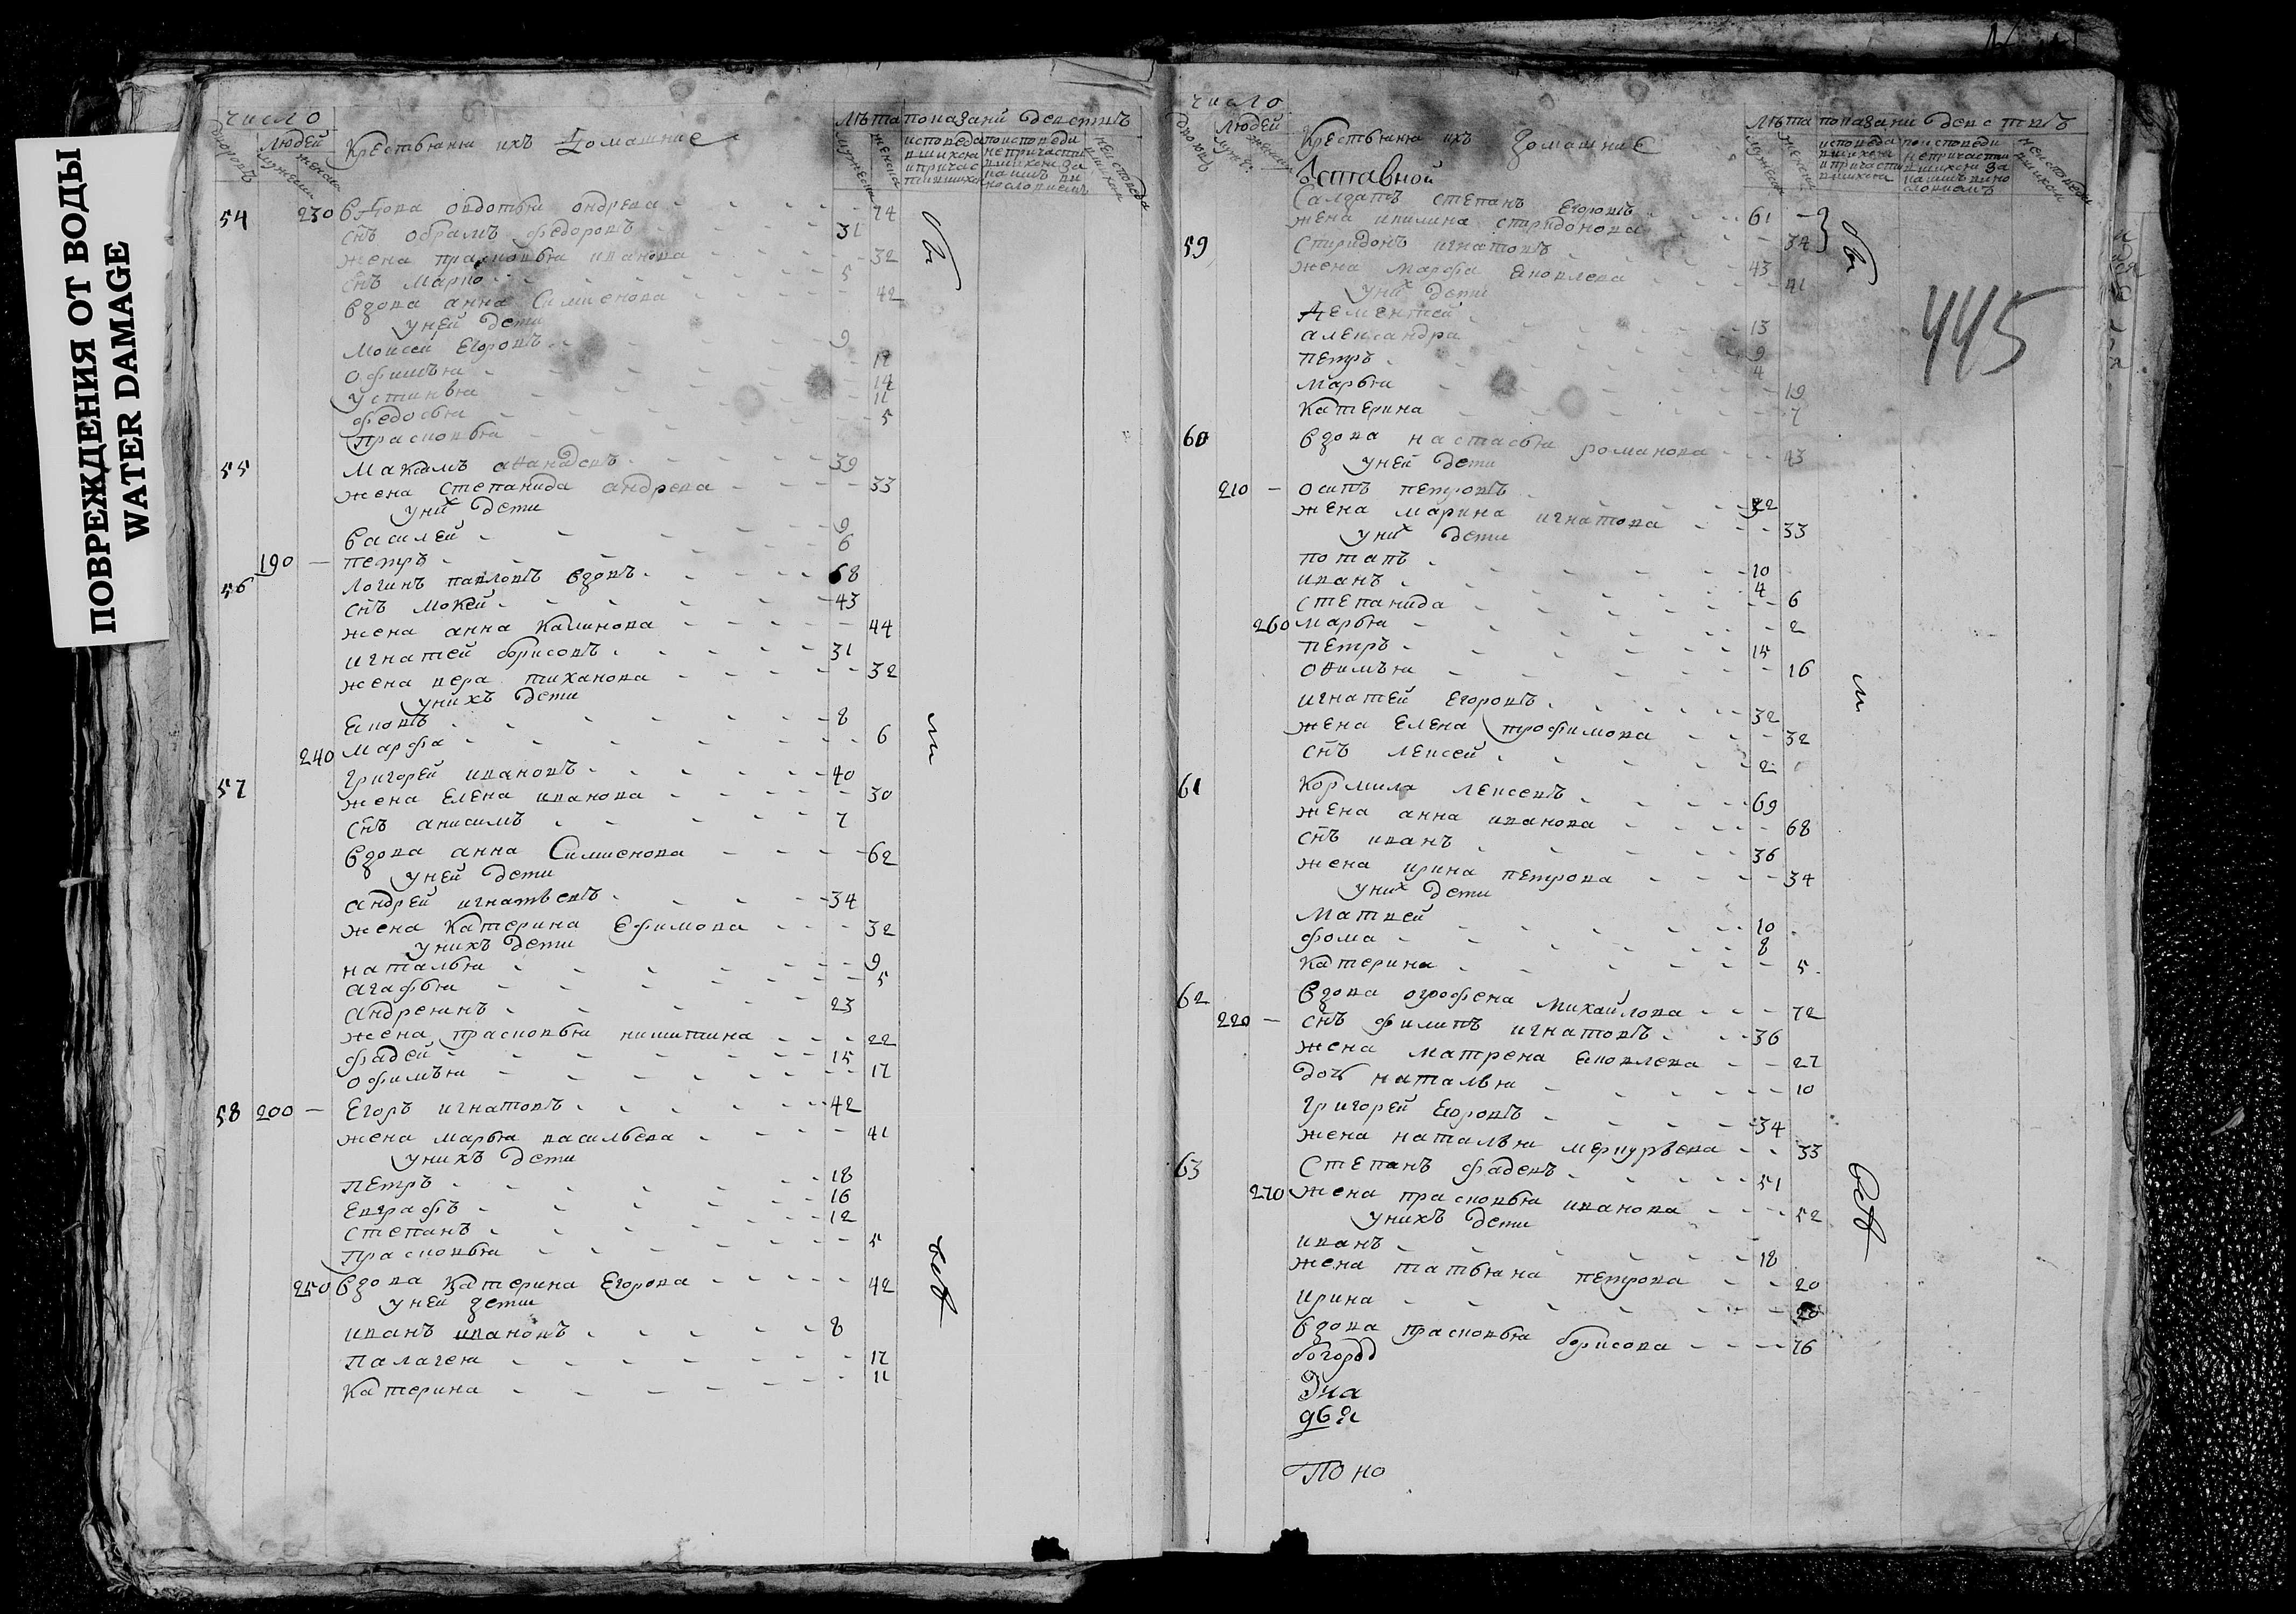 ПОВРЕЖДЕНИЯ ОТ ВОДЫ
WATER DAMAGE
число
людей
Крестьяня ихъ домашние
лѣта показани действъ
54 230 вдова овдотья ондрева 74
снъ обрамъ федоровъ 31
жена прасковья иванова 32
снъ марко 5
вдова анна Симионова 42
уней дети
Моисей Егоровъ 9
офимья 17
устинья 14
федосья 11
прасковья 5
55 Максимъ аѳанасевъ 39
жена степанида андрева 33
уних дети
василей 9
190 петръ 6
56 Логинъ павловъ вдовъ 68
снъ мокей 43
жена анна калинова 44
игнатей борисовъ 31
жена вера тиханова 32
унихъ дети
яковъ 8
240 марфа 6
57 григорей ивановъ 40
жена елена иванова 30
снъ анисимъ 7
вдова анна Симионова 62
уней дети
андрей игнатьевъ 34
жена катерина ефимова 32
унихъ дети
наталья 9
агафья 5
андреянъ 23
жена прасковья никитина 22
фадей 15
офимья 17
58 200 Егоръ игнатовъ 42
жена марья васильева 41
унихъ дети
петръ 18
евграфъ 16
степанъ 12
прасковья 5
250 вдова катерина Егорова 42
уней дети
иванъ ивановъ 8
палагея 17
катерина 11
число
людей
Крестьяня ихъ домашние
лѣта показани действъ
445
Уставной
Салдатъ степанъ Егоровъ 61
жена акилина спиридонова 34
59 Спиридонъ игнатовъ 43
жена марфа яковлева 41
уних дети
Дементей 13
александра 9
петръ 4
марья 19
катерина 7
60 вдова настасья романова 43
уней дети
210 осипъ петровъ 32
жена марина игнатова 33
уних дети
потапъ 10
иванъ 4
степанида 6
260 марья 2
петръ 15
оѳимья 16
игнатей Егоровъ 32
жена елена трофимова 32
снъ лексей 2
61 Кормила лексевъ 69
жена анна иванова 68
снъ иванъ 36
жена ирина петрова 34
уних дети
матвей 10
фома 8
катерина 5
62 вдова огрофена михайлова 72
220 снъ филипъ игнатовъ 36
жена матрена яковлева 27
доч наталья 10
григорей Егоровъ 34
жена наталья меркурьева 33
63 степанъ фадевъ 51
270 жена прасковья иванова 52
унихъ дети
иванъ 18
жена татьяна петрова 20
ирина 20
вдова прасковья борисова 76
богород
По но